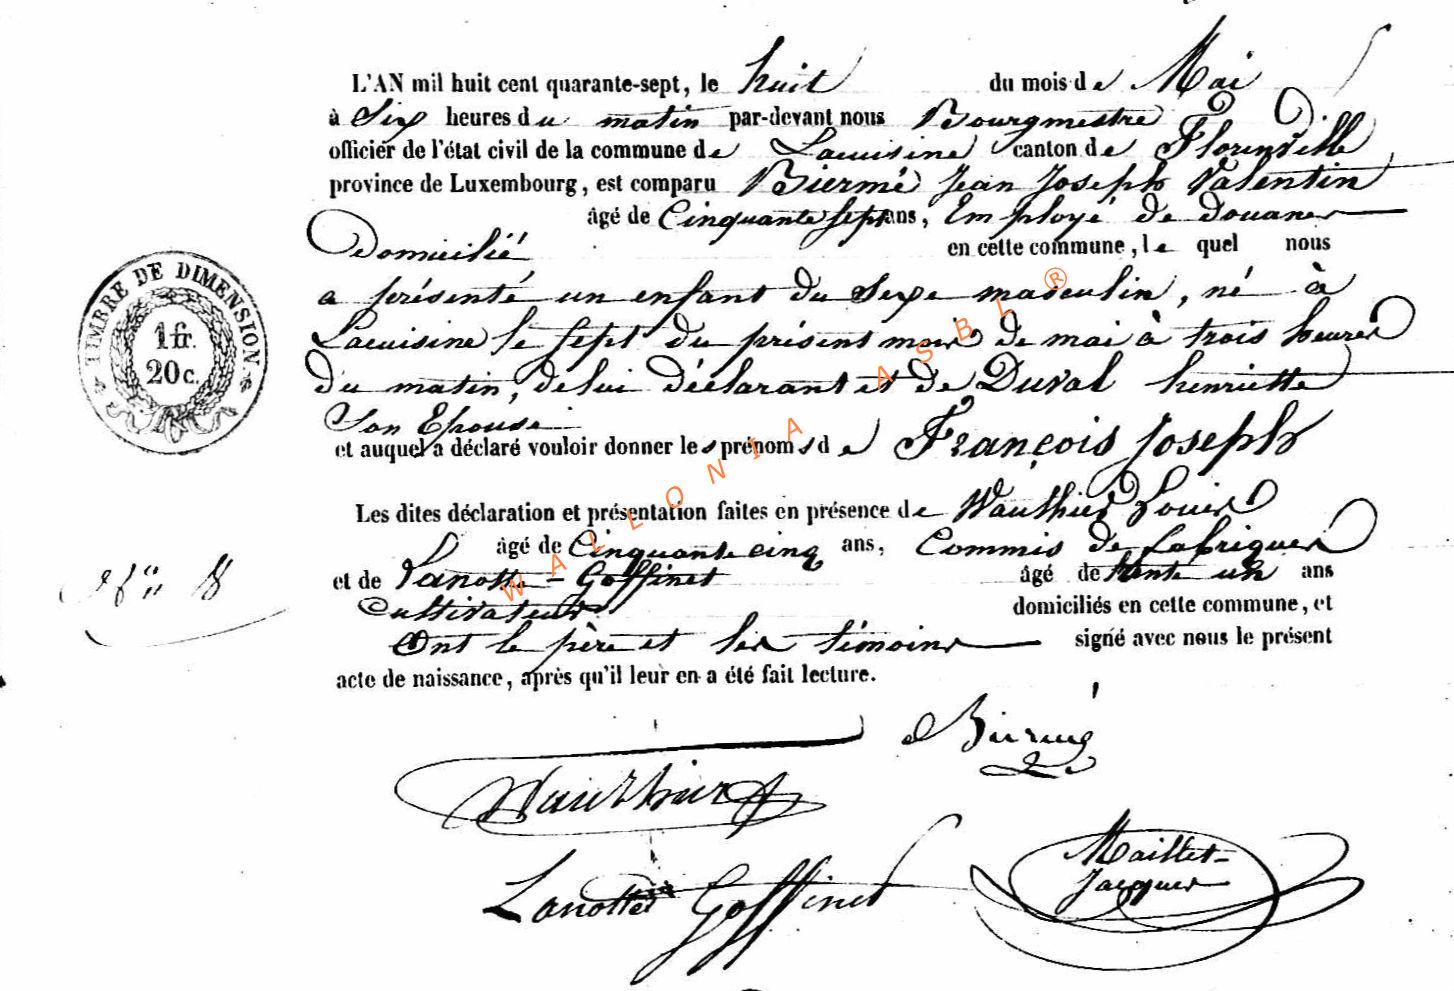 L'AN mil huit cent quarante-sept, le huit du mois de Mai
à Six heures du matin par-devant nous Bourgmestre
officier de l'état civil de la commune de Lacuisine canton de Florenville
province de Luxembourg, est comparu Biermé Jean Joseph Valentin
âgé de Cinquante sept ans, Employé de douanes
Domicilié en cette commune, le quel nous
a présenté un enfant du sexe masculin, né à
Lacuisine le sept du présent mois de mai à trois heures
du matin, de lui déclarant et de Duval henriette
Son Epouse
et auquel a déclaré vouloir donner les prénoms de François Joseph
Les dites déclaration et présentation faites en présence de Wauthier Louis
âgé de Cinquante cinq ans, Commis de fabriques
et de Lanotte - Goffinet âgé de trente un ans
Cultivateur domiciliés en cette commune, et
Ont le père et les témoins signé avec nous le présent
acte de naissance, après qu'il leur en a été fait lecture.
TIMBRE DE DIMENSION
1 fr.
20 c.
N° 8
Biermé
Wauthier
Lanotte Goffinet
Maillet-
Jacques
WALLONIA ASBL ®